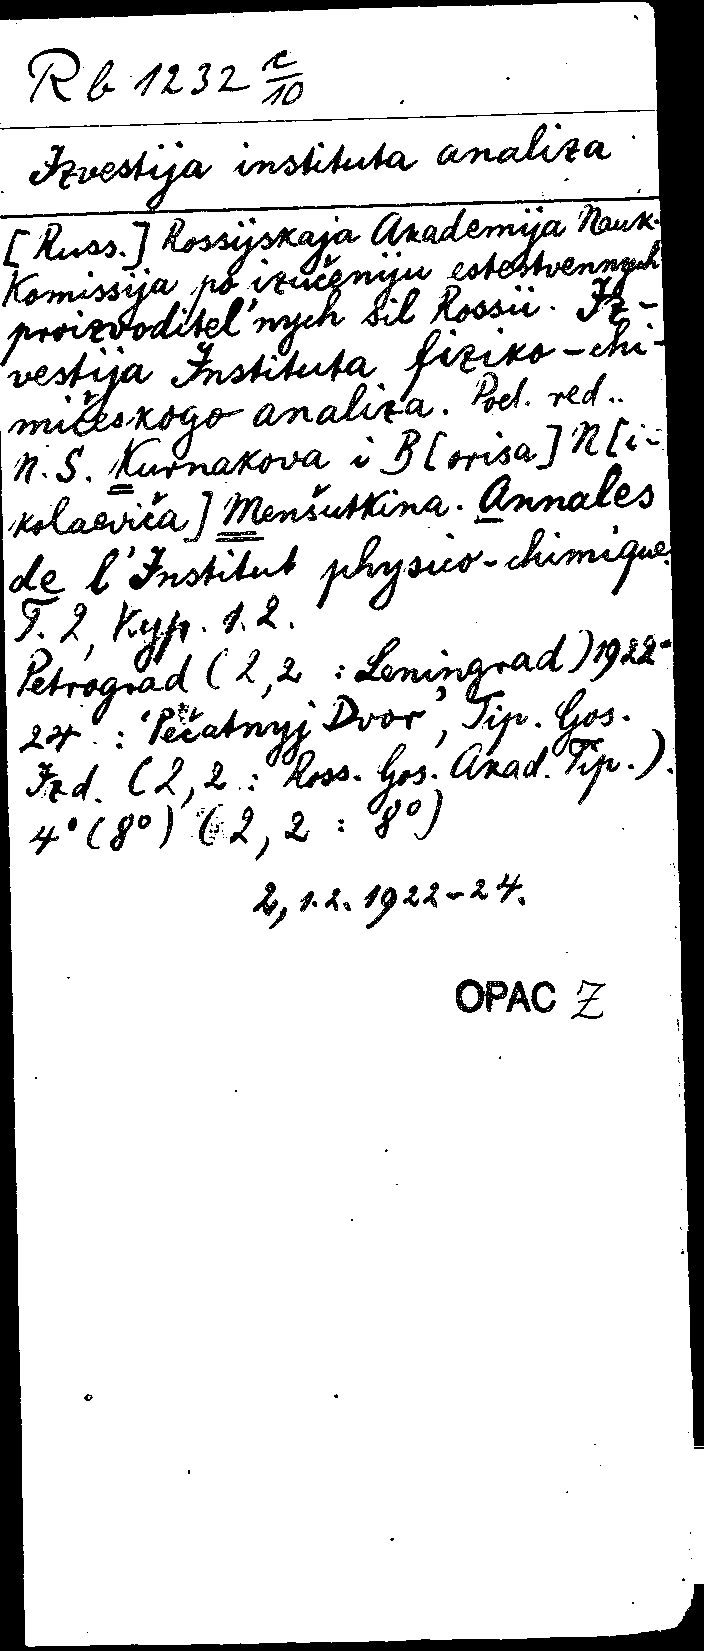 Rb 1232 c/10
Izvestija instituta analiza
[Russ.] Rossijskaja Akademija Nauk.
Komissija po izučeniju estestvennych
proizvoditel'nych sil Rossii. Iz-
vestija Instituta fiziko-chi-
mičeskogo analiza. Pod. red..
N. S. Kurnakova i B[orisa] N[i-
kolaeviča] Menšutkina. Annales
de l'Institut physico-chimique.
T. 2, Vyp. 1.2.
Petrograd (2,2 : Leningrad) 1922-
24 : 'Pečatnyj Dvor', Tip. Gos.
Izd. (2,2 : Ross. Gos. Akad. Tip.).
4° (8°) (2, 2 : 8°)
2, 1.2. 1922-24.
OPAC Z